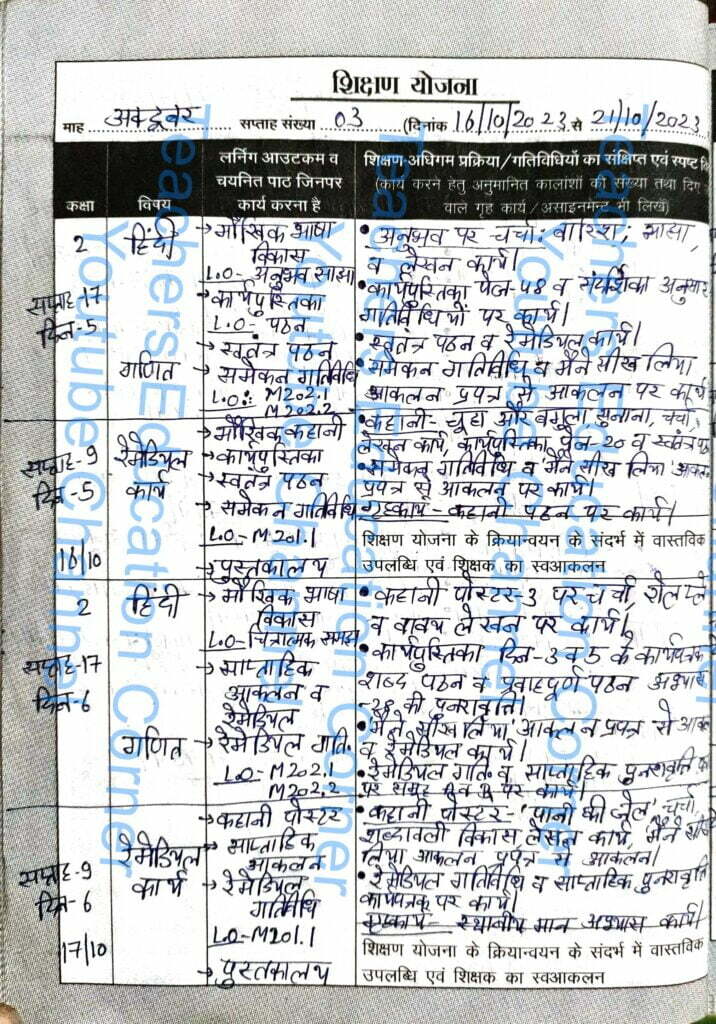 शिक्षण योजना
माह अक्टूबर सप्ताह संख्या 03 (दिनांक 16/10/2023 से 21/10/2023
कक्षा विषय लर्निंग आउटकम व चयनित पाठ जिनपर कार्य करना है
शिक्षण-अधिगम प्रक्रिया/गतिविधियों का संक्षिप्त एवं स्पष्ट
(कार्य करने हेतु अनुमानित कालांशों की संख्या तथा दिए
वाले गृह कार्य/असाइनमेन्ट भी लिखें)
2 हिंदी
सप्ताह-17
दिन-5
गणित
→ मौखिक भाषा
विकास
L.O- अनुभव साझा
→ कार्यपुस्तिका
L.O- पठन
→ स्वतंत्र पठन
→ समेकन गतिविधि
L.O:- M202.1
M202.2
• अनुभव पर चर्चा: बारिश; भाषा,
व लेखन कार्य।
• कार्यपुस्तिका पेज-58 व संदर्शिका अनुसार
गतिविधियों पर कार्य।
• स्वतंत्र पठन व रेमेडियल कार्य।
• समेकन गतिविधि व मैंने सीख लिया
आकलन प्रपत्र से आकलन पर कार्य
सप्ताह-9 रेमेडियल
दिन-5 कार्य
16/10
→ मौखिक कहानी
→ कार्यपुस्तिका
→ स्वतंत्र पठन
→ समेकन गतिविधि
L.O- M201.1
→ पुस्तकालय
• कहानी- चूहा और बगुला सुनाना, चर्चा,
लेखन कार्य, कार्यपुस्तिका पेज-20 व स्वतंत्र
• समेकन गतिविधि व मैंने सीख लिया
प्रपत्र से आकलन पर कार्य।
गृहकार्य- कहानी पठन पर कार्य।
शिक्षण योजना के क्रियान्वयन के संदर्भ में वास्तविक
उपलब्धि एवं शिक्षक का स्वआकलन
2 हिंदी
सप्ताह-17
दिन-6
गणित
→ मौखिक भाषा
विकास
L.O- चित्रात्मक समझ
→ साप्ताहिक
आकलन व
रेमेडियल
→ रेमेडियल गति.
L.O- M202.1
M202.2
• कहानी पोस्टर-3 पर चर्चा,
व वाक्य लेखन पर कार्य।
• कार्यपुस्तिका दिन-3 व 5 के कार्यपत्रक
शब्द पठन व प्रवाहपूर्ण पठन अभ्यास
की पुनरावृत्ति।
• मैंने सीख लिया, आकलन प्रपत्र से
व रेमेडियल कार्य।
• रेमेडियल गति. व साप्ताहिक पुनरावृत्ति
पर समूह A व B पर कार्य।
सप्ताह-9 रेमेडियल
दिन-6 कार्य
17/10
→ कहानी पोस्टर
→ साप्ताहिक
आकलन
→ रेमेडियल
गतिविधि
L.O- M201.1
→ पुस्तकालय
• कहानी पोस्टर- 'पानी की' चर्चा,
शब्दावली विकास, लेखन कार्य, मैंने सीख
लिया आकलन प्रपत्र से आकलन।
• रेमेडियल गतिविधि व साप्ताहिक पुनरावृत्ति
कार्यपत्रक पर कार्य।
गृहकार्य- स्थानीय मान अभ्यास कार्य।
शिक्षण योजना के क्रियान्वयन के संदर्भ में वास्तविक
उपलब्धि एवं शिक्षक का स्वआकलन
Teachers Education Corner
Youtube Channel
Teachers Education Corner
Youtube Channel
Teachers Education Corner
Youtube Channel